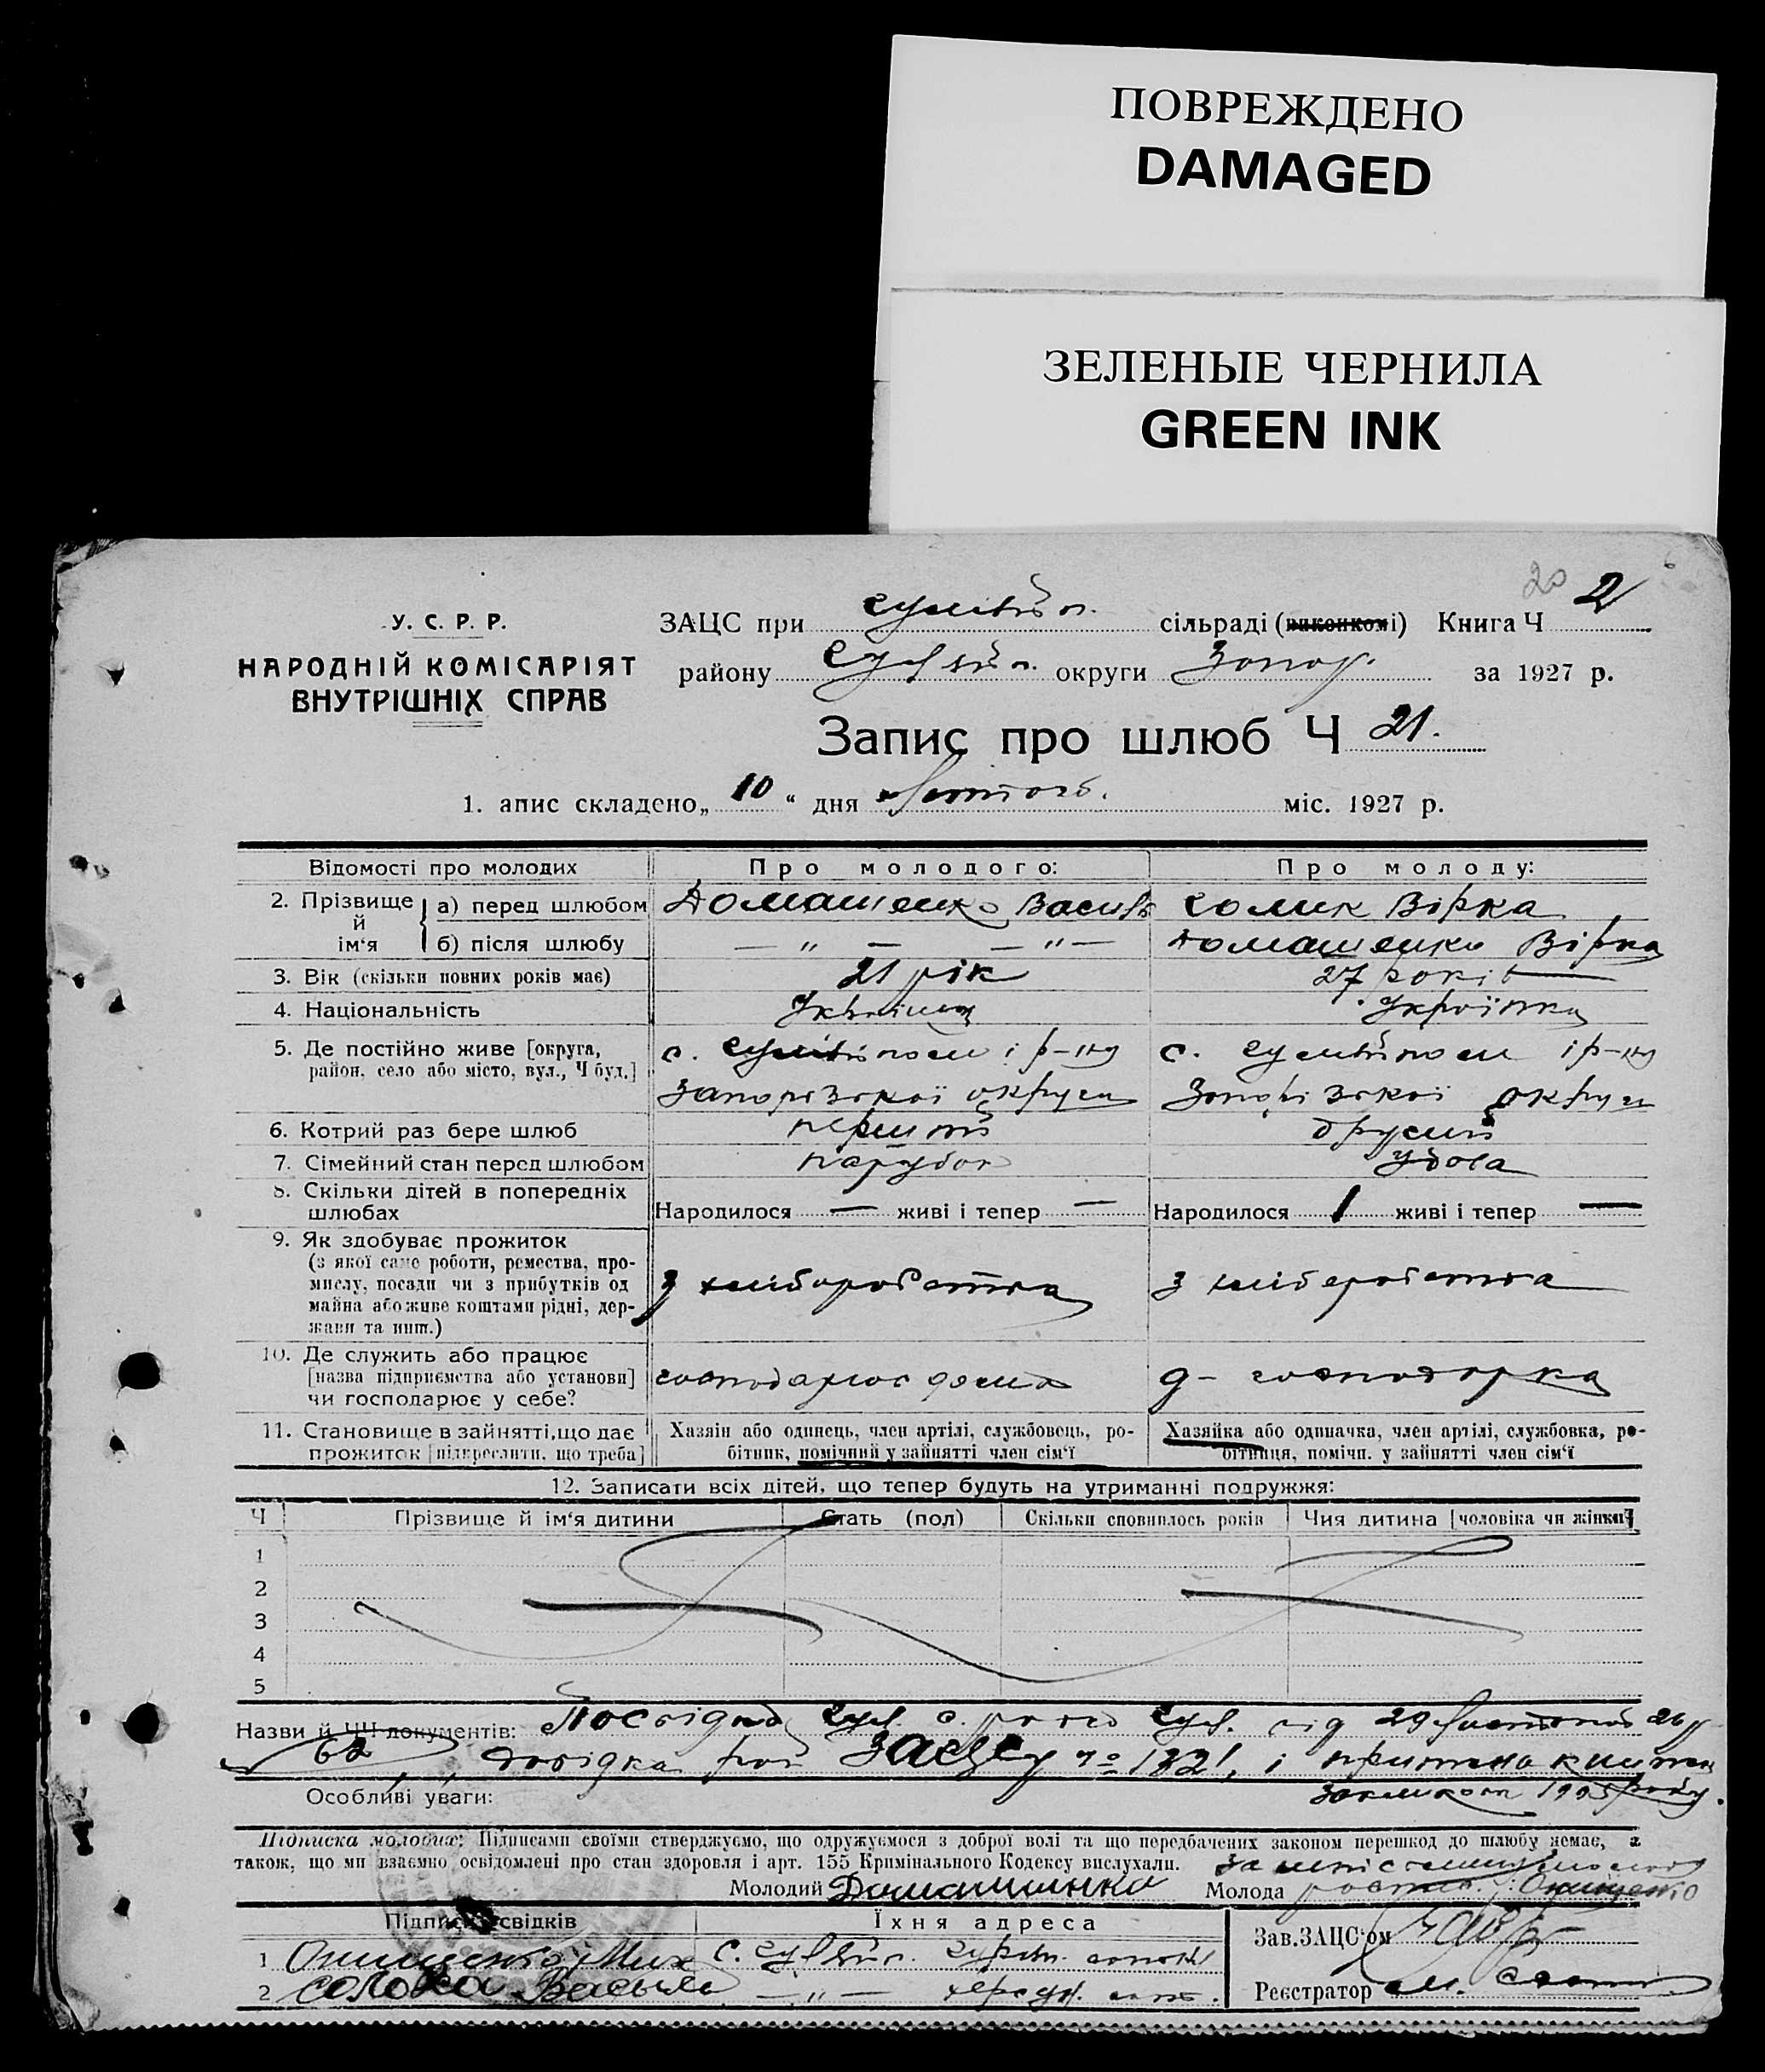 ПОВРЕЖДЕНО
DAMAGED
ЗЕЛЕНЫЕ ЧЕРНИЛА
GREEN INK
20 2
У. С. Р. Р.
НАРОДНІЙ КОМІСАРІЯТ
ВНУТРІШНІХ СПРАВ
ЗАЦС при сільраді (виконкомі) Книга Ч
району округи Запор. за 1927 р.
Запис про шлюб Ч 21.
1. апис складено „ 10 “ дня Лютого. міс. 1927 р.
Відомості про молодих Про молодого: Про молоду:
2. Прізвище й ім‘я а) перед шлюбом Домашенко Василь Сомик Вірка
б) після шлюбу — „ — — „ — Домашенко Вірка
3. Вік (скільки повних років має) 21 рік 27 років
4. Національність Українец Українка
5. Де постійно живе [округа, район, село або місто, вул., Ч буд.] с. і р-ну с. і р-ну
Запорізької округи Запорізької округи
6. Котрий раз бере шлюб перший другий
7. Сімейний стан перед шлюбом парубок удова
8. Скільки дітей в попередніх шлюбах Народилося — живі і тепер — Народилося 1 живі і тепер —
9. Як здобуває прожиток
(з якої саме роботи, ремества, про-
мислу, посади чи з прибутків од
майна або живе коштами рідні, дер-
жави та инш.) з хліборобства з хліборобства
10. Де служить або працює
[назва підприємства або установи]
чи господарює у себе? господарює дома д- господарка
11. Становище в зайнятті, що дає
прожиток [підкреслити, що треба]
Хазяїн або одинець, член артілі, службовець, ро-
бітник, помічний у зайнятті член сім‘ї
Хазяйка або одиначка, член артілі, службовка, ро-
бітниця, помічн. у зайнятті член сім‘ї
12. Записати всіх дітей, що тепер будуть на утриманні подружжя:
Ч Прізвище й ім‘я дитини Стать (пол) Скільки сповнилось років Чия дитина [чоловіка чи жінки]
1
2
3
4
5
Назви й ЧЧ документів: Посвідка від 29
62 довідка ЗАЦСу № 1321, і
Особливі уваги: 1905 року.
Підписка молодих: Підписами своїми стверджуємо, що одружуємося з доброї волі та що передбачених законом перешкод до шлюбу немає, а
також, що ми взаємно освідомлені про стан здоровля і арт. 155 Кримінального Кодексу вислухали.
Молодий Домашенко Молода Онищенко
Підписи свідків Їхня адреса
1 Онищенко Мих с.
2 Василь — „ —
Зав. ЗАЦС‘ом
Реєстратор